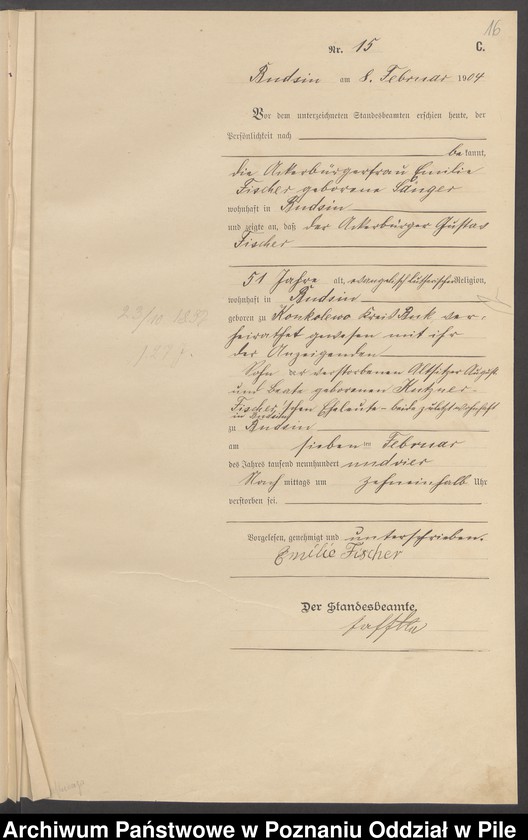 16
Nr. 15 C.
Rudsin am 8. Februar 1904
Vor dem unterzeichneten Standesbeamten erschien heute, der
Persönlichkeit nach
bekannt,
die Ackerbürgerfrau Emilie
Fischer geborene Sänger
wohnhaft in Rudsin
und zeigte an, daß der Ackerbürger Gustav
Fischer
51 Jahre alt, evangelisch lutherischer Religion,
wohnhaft in Rudsin
geboren zu Konkolewo Kreis Buk ver-
heirathet gewesen mit ihr
der Anzeigenden
Sohn der verstorbenen Altsitzer August
und Beate geborenen Kutzner-
Fischer'schen Eheleute - beide zuletzt wohnhaft
in
zu Rudsin
am sieben ten Februar
des Jahres tausend neunhundert und vier
Nach mittags um zehneinhalb Uhr
verstorben sei.
Vorgelesen, genehmigt und unterschrieben.
Emilie Fischer
Der Standesbeamte.
Archiwum Państwowe w Poznaniu Oddział w Pile